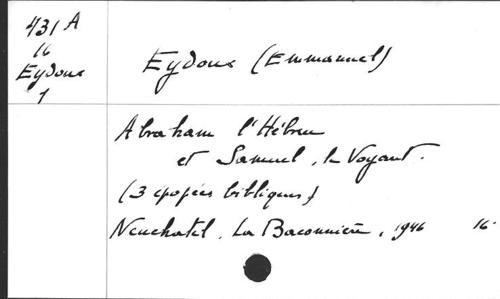 431 A
16
Eydoux
1
Eydoux (Emmanuel)
Abraham l'Hébreu
et Samuel, le Voyant.
(3 épopées bibliques)
Neuchatel, La Baconnière, 1946 16°